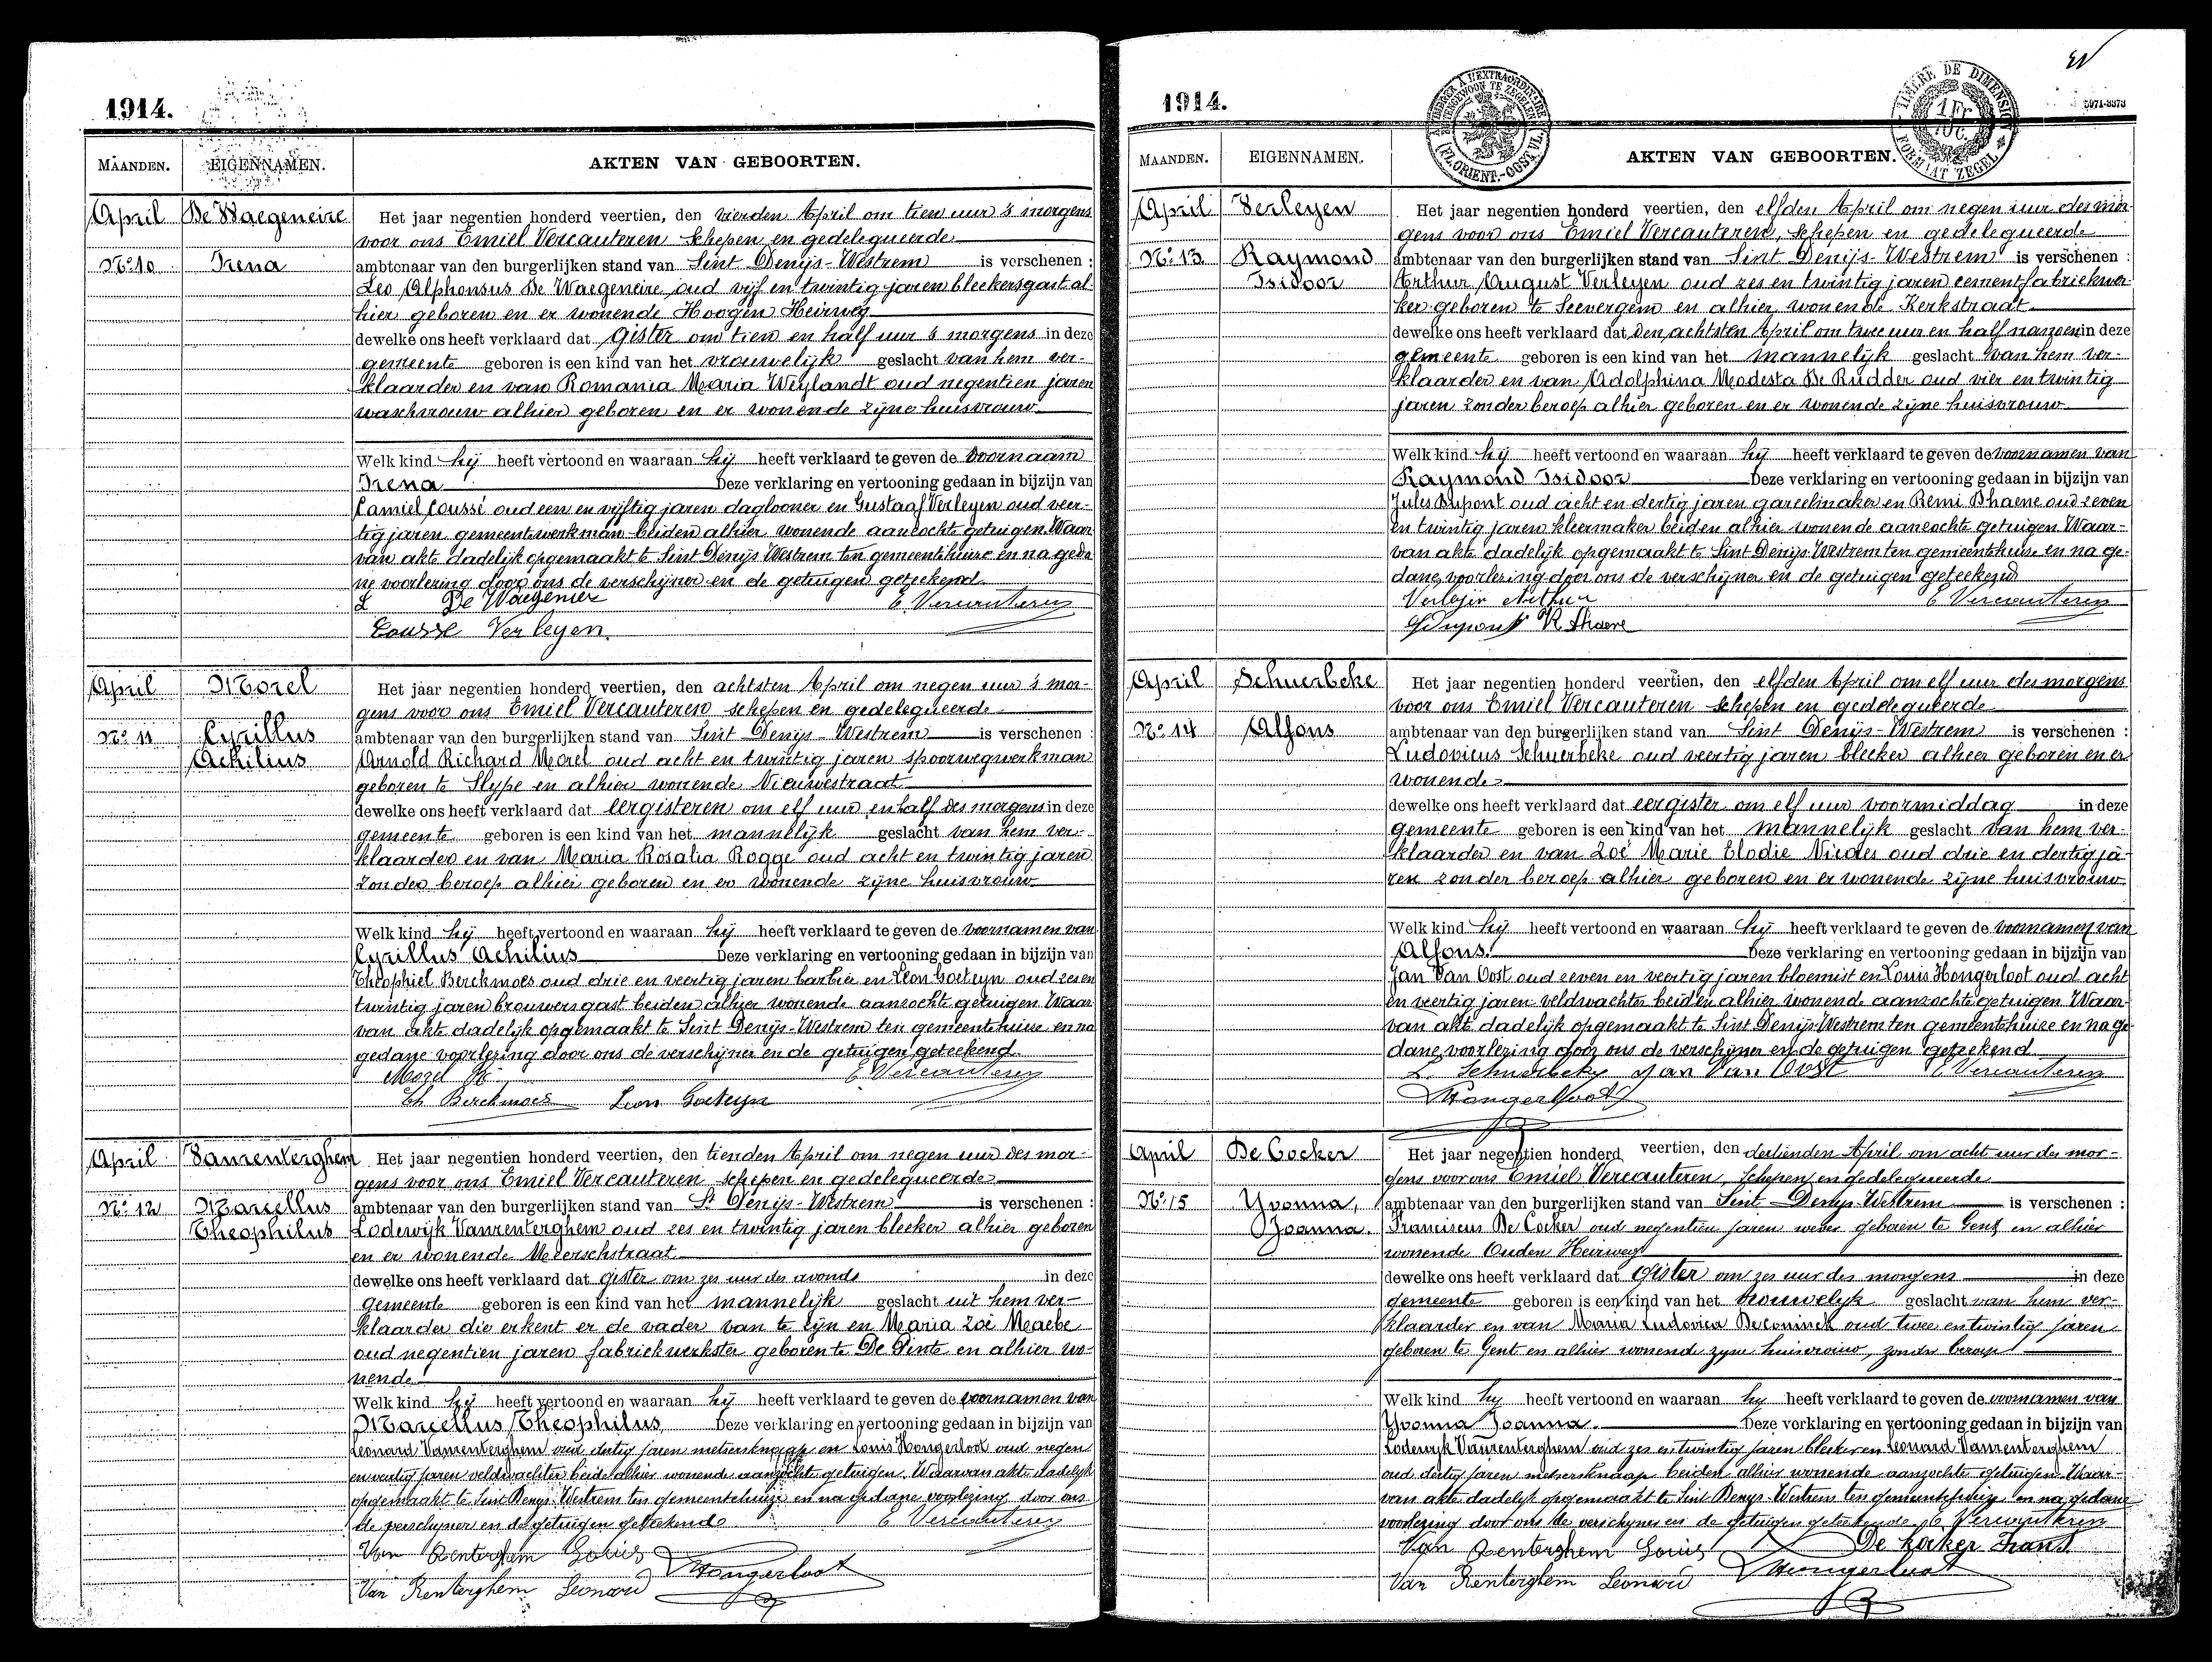 1914.
MAANDEN. EIGENNAMEN. AKTEN VAN GEBOORTEN.
April De Waegeneire Het jaar negentien honderd veertien, den vierden April om tien uur 's morgens
voor ons Emiel Vercauteren schepen en gedelegueerde
No 10 Irena ambtenaar van den burgerlijken stand van Sint Denijs-Westrem is verschenen :
Leo Alphonsus De Waegeneire oud vijf en twintig jaren bleekersgast al-
hier geboren en er wonende Hoogen Heirweg
dewelke ons heeft verklaard dat gister om tien en half uur 's morgens in deze
gemeente geboren is een kind van het vrouwelijk geslacht van hem ver-
klaarder en van Romania Maria Weylandt oud negentien jaren
waschvrouw alhier geboren en er wonende zijne huisvrouw
Welk kind hij heeft vertoond en waaraan hij heeft verklaard te geven de voornaam
Irena Deze verklaring en vertooning gedaan in bijzijn van
Camiel Coussé oud een en vijftig jaren daglooner en Gustaaf Verleyen oud veer-
tig jaren gemeentewerkman beiden alhier wonende aanzochte getuigen. Waar-
van akte dadelijk opgemaakt te Sint Denijs Westrem ten gemeentehuize en na geda
ne voorlezing door ons de verschijner en de getuigen geteekend.
L De Waegenier E Vercauteren
Cousse Verleyen.
April Morel Het jaar negentien honderd veertien, den achtsten April om negen uur 's mor-
gens voor ons Emiel Vercauteren schepen en gedelegueerde
No 11 Cyrillus ambtenaar van den burgerlijken stand van Sint Denijs-Westrem is verschenen :
Achilius Arnold Richard Morel oud acht en twintig jaren spoorwegwerkman
geboren te Slype en alhier wonende Nieuwestraat
dewelke ons heeft verklaard dat eergisteren om elf uur en half des morgens in deze
gemeente geboren is een kind van het mannelijk geslacht van hem ver-
klaarder en van Maria Rosalia Rogge oud acht en twintig jaren
zonder beroep alhier geboren en er wonende zijne huisvrouw
Welk kind hij heeft vertoond en waaraan hij heeft verklaard te geven de voornamen van
Cyrillus Achilius Deze verklaring en vertooning gedaan in bijzijn van
Theophiel Berckmoes oud drie en veertig jaren barbier en Leon Goeteyn oud zes en
twintig jaren brouwersgast beiden alhier wonende aanzochte getuigen. Waar-
van akte dadelijk opgemaakt te Sint Denijs-Westrem ten gemeentehuize en na
gedane voorlezing door ons de verschijner en de getuigen geteekend
Morel E Vercauteren
Th Berckmoes Leon Goeteyn
April Vanrenterghem Het jaar negentien honderd veertien, den tienden April om negen uur des mor-
gens voor ons Emiel Vercauteren schepen en gedelegueerde
No 12 Marcellus ambtenaar van den burgerlijken stand van St Denijs-Westrem is verschenen :
Theophilus Lodewijk Vanrenterghem oud zes en twintig jaren bleeker alhier geboren
en er wonende Meerschstraat
dewelke ons heeft verklaard dat gister om zes uur des avonds in deze
gemeente geboren is een kind van het mannelijk geslacht uit hem ver-
klaarder die erkent er de vader van te zijn en Maria Zoë Maebe
oud negentien jaren fabriekwerkster geboren te De Pinte en alhier wo-
nende
Welk kind hij heeft vertoond en waaraan hij heeft verklaard te geven de voornamen van
Marcellus Theophilus Deze verklaring en vertooning gedaan in bijzijn van
Leonard Vanrenterghem oud dertig jaren metsersknaap en Louis Hongerloot oud negen
en veertig jaren veldwachter beide alhier wonende aanzochte getuigen. Waarvan akte dadelijk
opgemaakt te Sint Denys-Westrem ten gemeentehuize en na gedane voorlezing door ons
de verschyner en de getuigen geteekend E Vercauteren
Van Renterghem Louis Hongerloot
Van Renterghem Leonard
1914.
MAANDEN. EIGENNAMEN. AKTEN VAN GEBOORTEN.
April Verleyen Het jaar negentien honderd veertien, den elfden April om negen uur des mor-
gens voor ons Emiel Vercauteren, schepen en gedelegueerde
No 13 Raymond ambtenaar van den burgerlijken stand van Sint Denijs-Westrem is verschenen :
Isidoor Arthur August Verleyen oud zes en twintig jaren cementfabriekwer-
ker geboren te Seevergem en alhier wonende Kerkstraat
dewelke ons heeft verklaard dat den achtsten April om twee uur en half namoen in deze
gemeente geboren is een kind van het mannelijk geslacht van hem ver-
klaarder en van Adolphina Modesta De Rudder oud vier en twintig
jaren zonder beroep alhier geboren en er wonende zijne huisvrouw
Welk kind hij heeft vertoond en waaraan hij heeft verklaard te geven de voornamen van
Raymond Isidoor Deze verklaring en vertooning gedaan in bijzijn van
Jules Dupont oud acht en dertig jaren gareelmaker en Remi Dhaene oud zeven
en twintig jaren kleermaker beiden alhier wonende aanzochte getuigen. Waar-
van akte dadelijk opgemaakt te Sint Denijs-Westrem ten gemeentehuize en na ge-
dane voorlezing door ons de verschijner en de getuigen geteekend
Verleyen Arthur E Vercauteren
Dupont R Dhaene
April Schuerbeke Het jaar negentien honderd veertien, den elfden April om elf uur des morgens
voor ons Emiel Vercauteren schepen en gedelegueerde
No 14 Alfons ambtenaar van den burgerlijken stand van Sint Denijs-Westrem is verschenen :
Ludovicus Schuerbeke oud veertig jaren bleeker alhier geboren en er
wonende
dewelke ons heeft verklaard dat eergister om elf uur voormiddag in deze
gemeente geboren is een kind van het mannelijk geslacht van hem ver-
klaarder en van Zoë Marie Elodie oud drie en dertig ja-
ren zonder beroep alhier geboren en er wonende zijne huisvrouw
Welk kind hij heeft vertoond en waaraan hij heeft verklaard te geven de voornamen van
Alfons. Deze verklaring en vertooning gedaan in bijzijn van
Jan Van Oost oud zeven en veertig jaren bloemist en Louis Hongerloot oud acht
en veertig jaren veldwachter beiden alhier wonende aanzochte getuigen. Waar-
van akte dadelijk opgemaakt te Sint Denijs-Westrem ten gemeentehuize en na ge-
dane voorlezing door ons de verschijner en de getuigen geteekend
L. Schuerbeke Jan Van Oost E Vercauteren
Hongerloot
April De Cocker Het jaar negentien honderd veertien, den dertienden April om acht uur des mor-
gens voor ons Emiel Vercauteren, schepen en gedelegueerde
No 15 Yvonna, ambtenaar van den burgerlijken stand van Sint-Denys-Westrem is verschenen :
Joanna. Franciscus De Cocker oud negentien jaren wever geboren te Gent en alhier
wonende Ouden Heirweg
dewelke ons heeft verklaard dat gister om zes uur des morgens in deze
gemeente geboren is een kind van het vrouwelyk geslacht van hem ver-
klaarder en van Maria Ludovica Deconinck oud twee en twintig jaren
geboren te Gent en alhier wonende zyne huisvrouw, zonder beroep
Welk kind hy heeft vertoond en waaraan hy heeft verklaard te geven de voornamen van
Yvonna Joanna. Deze verklaring en vertooning gedaan in bijzijn van
Lodewyk Vanrenterghem oud zes en twintig jaren bleeker en Leonard Vanrenterghem
oud dertig jaren metsersknaap beiden alhier wonende aanzochte getuigen. Waar-
van akte dadelyk opgemaakt te Sint Denys-Westrem ten gemeentehuize en na gedane
voorlezing door ons de verschyner en de getuigen geteekend E Vercauteren
Van Renterghem Louis De Cocker Frans
Van Renterghem Leonard Hongerloot